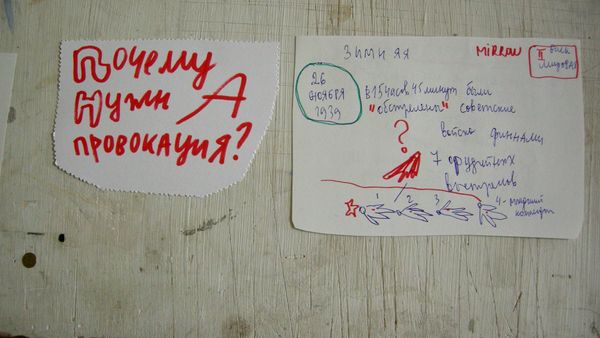 Почему
Нужн А
провокация?
зимняя
MiRRoW
II
26
ноября
1939
в 15 часов 45 минут были
"обстреляны" советские
?
войска финнами
7 орудийных
выстрелов
1 2 3 4 - младший